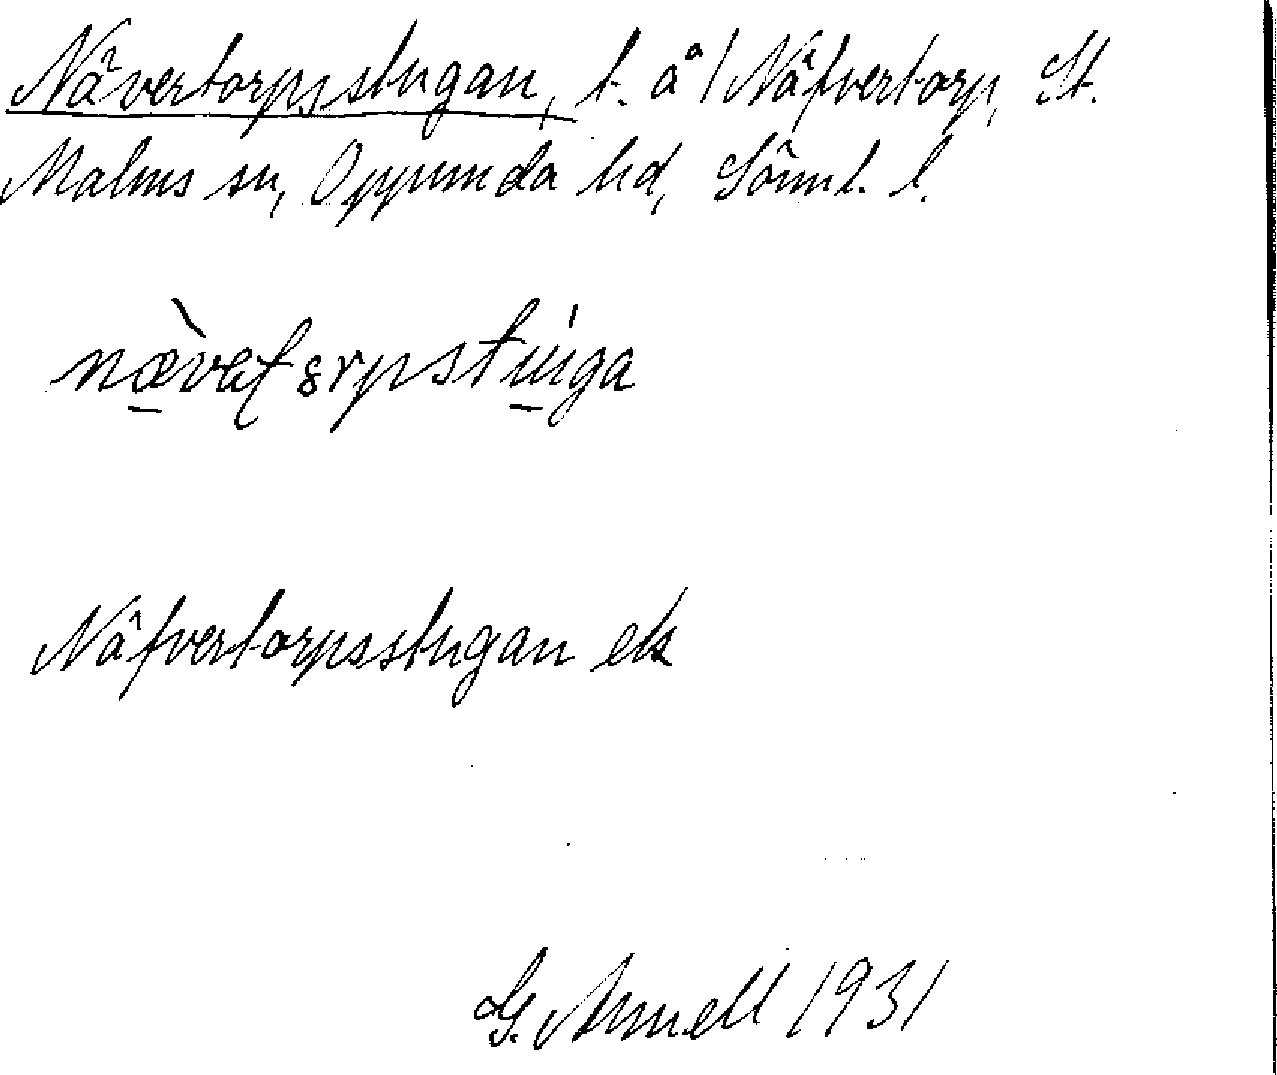 Nävertorpsstugan, t. å 1 Näfvertorp, St.
Malms sn, Oppunda hd, Södml. l.
nævatorpstuga
Näfvertorpsstugan ek
G. Arnell 1931